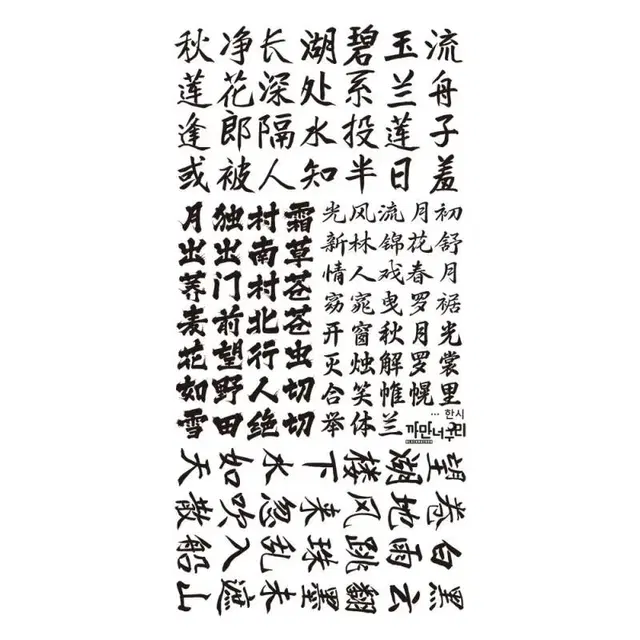 秋净长湖碧玉流
莲花深处系兰舟
逢郎隔水投莲子
或被人知半日羞
霜草苍苍虫切切
村南村北行人绝
独出门前望野田
月出荞麦花如雪
光风流月初
新林锦花舒
情人戏春月
窈窕曳罗裾
开窗秋月光
灭烛解罗裳
合笑帷幌里
举体兰
... 한시
까만너구리
黑云翻墨未遮山
白雨跳珠乱入船
卷地风来忽吹散
望湖楼下水如天